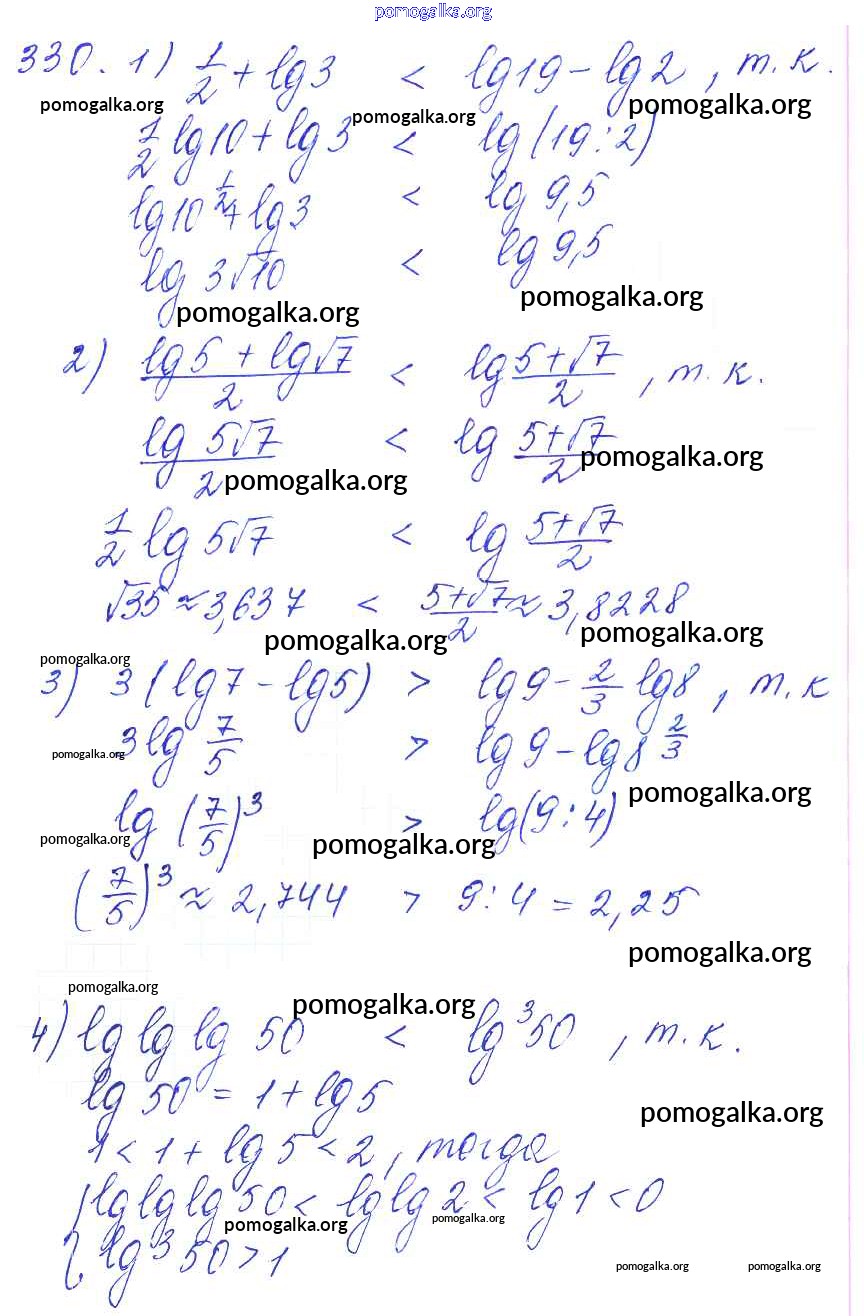 pomogalka.org
330. 1) 1/2 + lg3 < lg19 - lg2, т.к.
pomogalka.org pomogalka.org pomogalka.org
1/2 lg10 + lg3 < lg(19:2)
lg10^1/2 + lg3 < lg 9,5
lg 3√10 < lg 9,5
pomogalka.org pomogalka.org
2) (lg5 + lg√7)/2 < lg (5+√7)/2, т.к.
(lg 5√7)/2 < lg (5+√7)/2
pomogalka.org pomogalka.org
1/2 lg 5√7 < lg (5+√7)/2
√35 ≈ 3,637 < (5+√7)/2 ≈ 3,8228
pomogalka.org pomogalka.org
pomogalka.org
3) 3(lg7 - lg5) > lg9 - 2/3 lg8, т.к
3lg 7/5 > lg9 - lg8^2/3
pomogalka.org pomogalka.org
lg (7/5)^3 > lg(9:4)
pomogalka.org pomogalka.org
(7/5)^3 ≈ 2,744 > 9:4 = 2,25
pomogalka.org
pomogalka.org pomogalka.org
4) lg lg lg 50 < lg^3 50, т.к.
lg 50 = 1 + lg5
pomogalka.org
1 < 1 + lg5 < 2, тогда
{ lg lg lg 50 < lg lg 2 < lg 1 < 0
pomogalka.org pomogalka.org
lg^3 50 > 1
pomogalka.org pomogalka.org